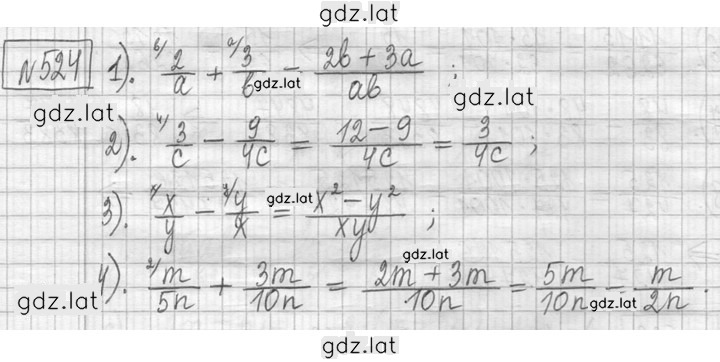 gdz.lat
№524 1). ᵇ⁾2/a + ᵃ⁾3/b = (2b + 3a)/ab ;
gdz.lat
gdz.lat
gdz.lat
2). ⁴⁾3/c − 9/4c = (12 − 9)/4c = 3/4c ;
3). ˣ⁾x/y − ʸ⁾y/x = (x² − y²)/xy ;
gdz.lat
4). ²⁾m/5n + 3m/10n = (2m + 3m)/10n = 5m/10n = m/2n .
gdz.lat
gdz.lat
gdz.lat
gdz.lat